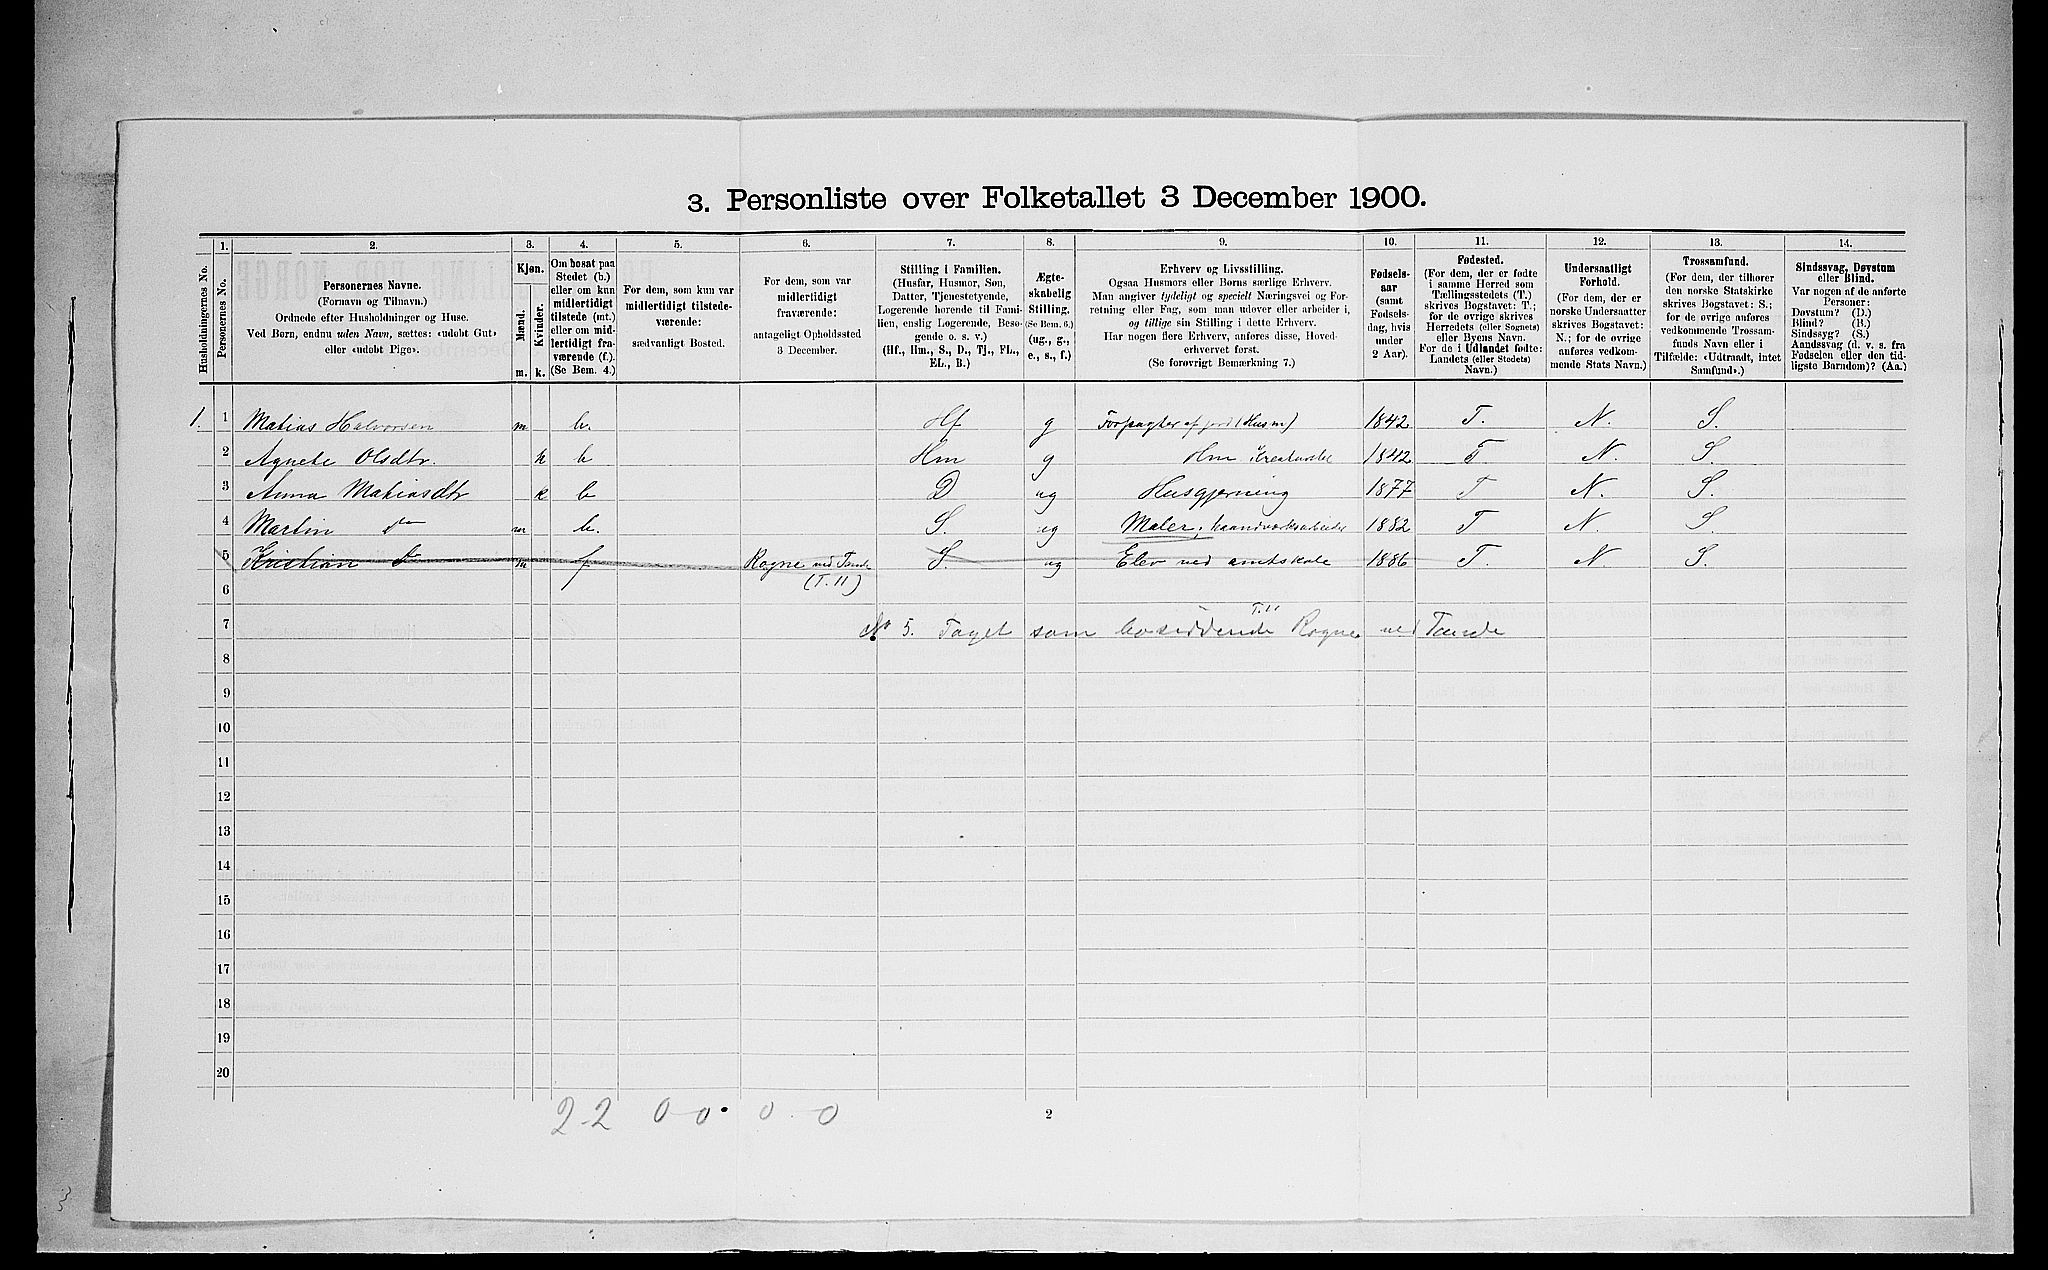 3. Personliste over Folketallet 3 December 1900.
Husholdningernes No.
1.
Personernes No.
2.
Personernes Navne.
(Fornavn og Tilnavn.)
Ordnede efter Husholdninger og Huse.
Ved Børn, endnu uden Navn, sættes: «udøbt Gut»
eller «udøbt Pige».
3.
Kjøn.
Mænd.
Kvinder.
m. k.
4.
Om bosat paa
Stedet (b.)
eller om kun
midlertidigt
tilstede (mt.)
eller om mid-
lertidigt fra-
værende (f.)
(Se Bem. 4.)
5.
For dem, som kun var
midlertidigt tilstede-
værende:
sædvanligt Bosted.
6.
For dem, som var
midlertidigt
fraværende:
antageligt Opholdssted
3 December.
7.
Stilling i Familien.
(Husfar, Husmor, Søn,
Datter, Tjenestetyende,
Logerende hørende til Fami-
lien, enslig Logerende, Besø-
gende o. s. v.)
(Hf., Hm., S., D., Tj., FL.,
EL., B.)
8.
Ægte-
skabelig
Stilling.
(Se Bem. 6.)
(ug., g.,
e., s., f.)
9.
Erhverv og Livsstilling.
Ogsaa Husmors eller Børns særlige Erhverv.
Man angiver tydeligt og specielt Næringsvei og For-
retning eller Fag, som man udøver eller arbeider i,
og tillige sin Stilling i dette Erhverv.
Har nogen flere Erhverv, anføres disse, Hoved-
erhvervet først.
(Se forøvrigt Bemærkning 7.)
10.
Fødsels-
aar
(samt
Fødsels-
dag, hvis
under
2 Aar).
11.
Fødested.
(For dem, der er fødte
i samme Herred som
Tællingsstedets (T.)
skrives Bogstavet: T.;
for de øvrige skrives
Herredets (eller Sognets)
eller Byens Navn.
For de i Udlandet fødte:
Landets (eller Stedets)
Navn.)
12.
Undersaatligt
Forhold.
(For dem, der er
norske Undersaatter
skrives Bogstavet:
N.; for de øvrige
anføres vedkom-
mende Stats Navn.)
13.
Trossamfund.
(For dem, der tilhører
den norske Statskirke
skrives Bogstavet: S.;
for de øvrige anføres
vedkommende Trossam-
funds Navn eller i
Tilfælde: «Udtraadt, intet
Samfund».)
14.
Sindssvag, Døvstum
eller Blind.
Var nogen af de anførte
Personer:
Døvstum? (D.)
Blind? (B.)
Sindssyg? (S.)
Aandssvag (d. v. s. fra
Fødselen eller den tid-
ligste Barndom)? (Aa.)
1. 1 Matias Halvorsen m b. Hf g Forpagter af jord (Husm) 1842 T. N. S.
2 Agnete Olsdtr. k b Hm g Hm Kreaturstel 1842 T N. S.
3 Anna Matiasdtr k b D ug Husgjerning 1877 T N. S.
4 Martin do m b. S. ug Maler, haandværksarbeider 1882 T N. S.
5 Kristian do m f Rogne ved Tande S. ug Elev ved amtskole 1886 T. N S.
6 (T. 11)
T. 11
7 No 5. Taget som bosiddende Rogne ved Tande
8
9
10
11
12
13
14
15
16
17
18
19
20
2-2 0-0. 0-0
2
3